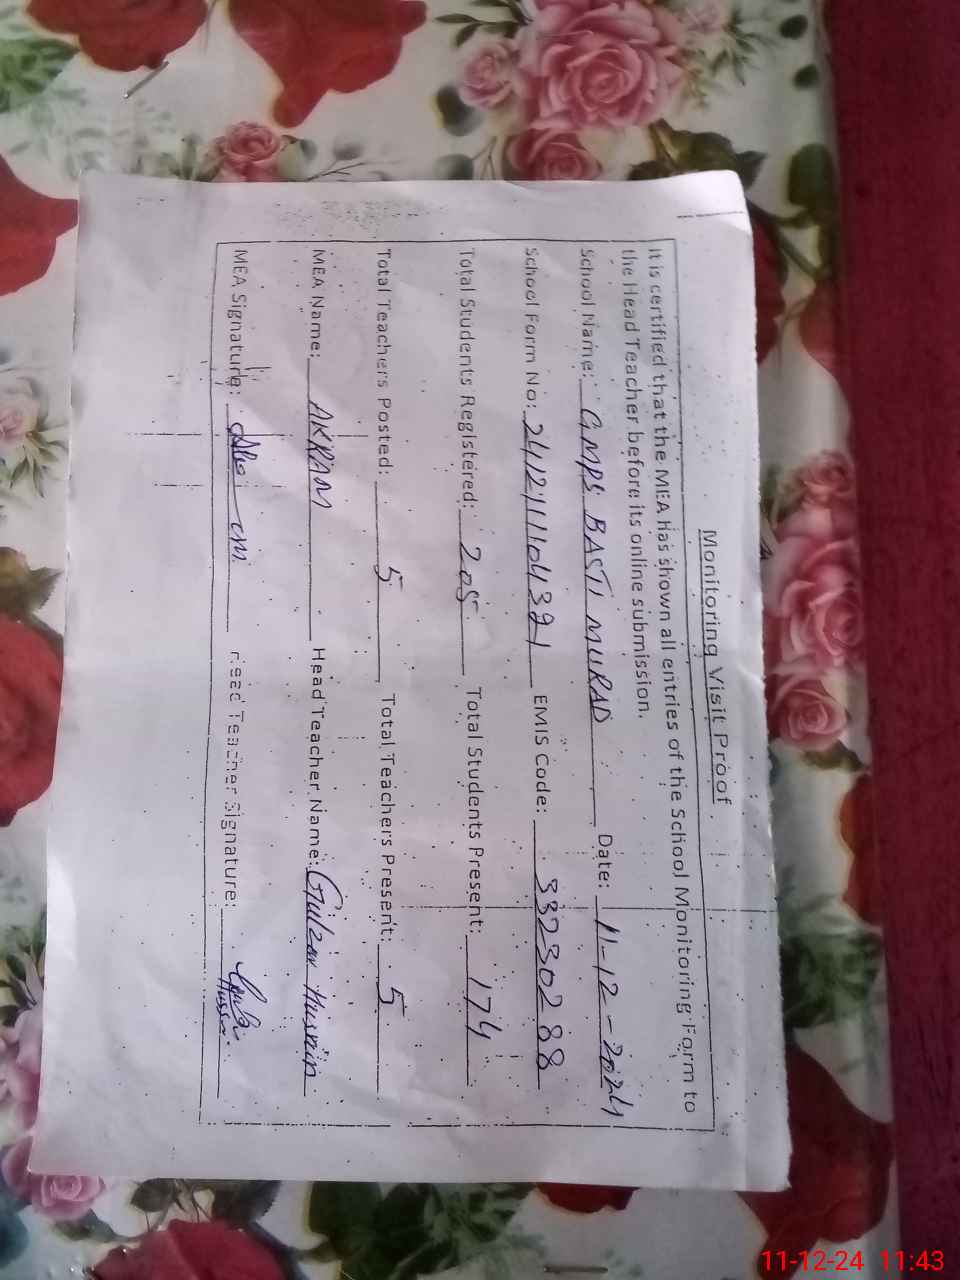 Monitoring Visit Proof
It is certified that the MEA has shown all entries of the School Monitoring Form to
the Head Teacher before its online submission.
School Name: GMPS BASTI MURAD Date: 11-12-2024
School Form No: 2412111104321 EMIS Code: 33230288
Total Students Registered: 205 Total Students Present: 174
Total Teachers Posted: 5 Total Teachers Present: 5
MEA Name: AKRAM Head Teacher Name: Gulzar Hussain
MEA Signature: Head Teacher Signature:
11-12-24 11:43